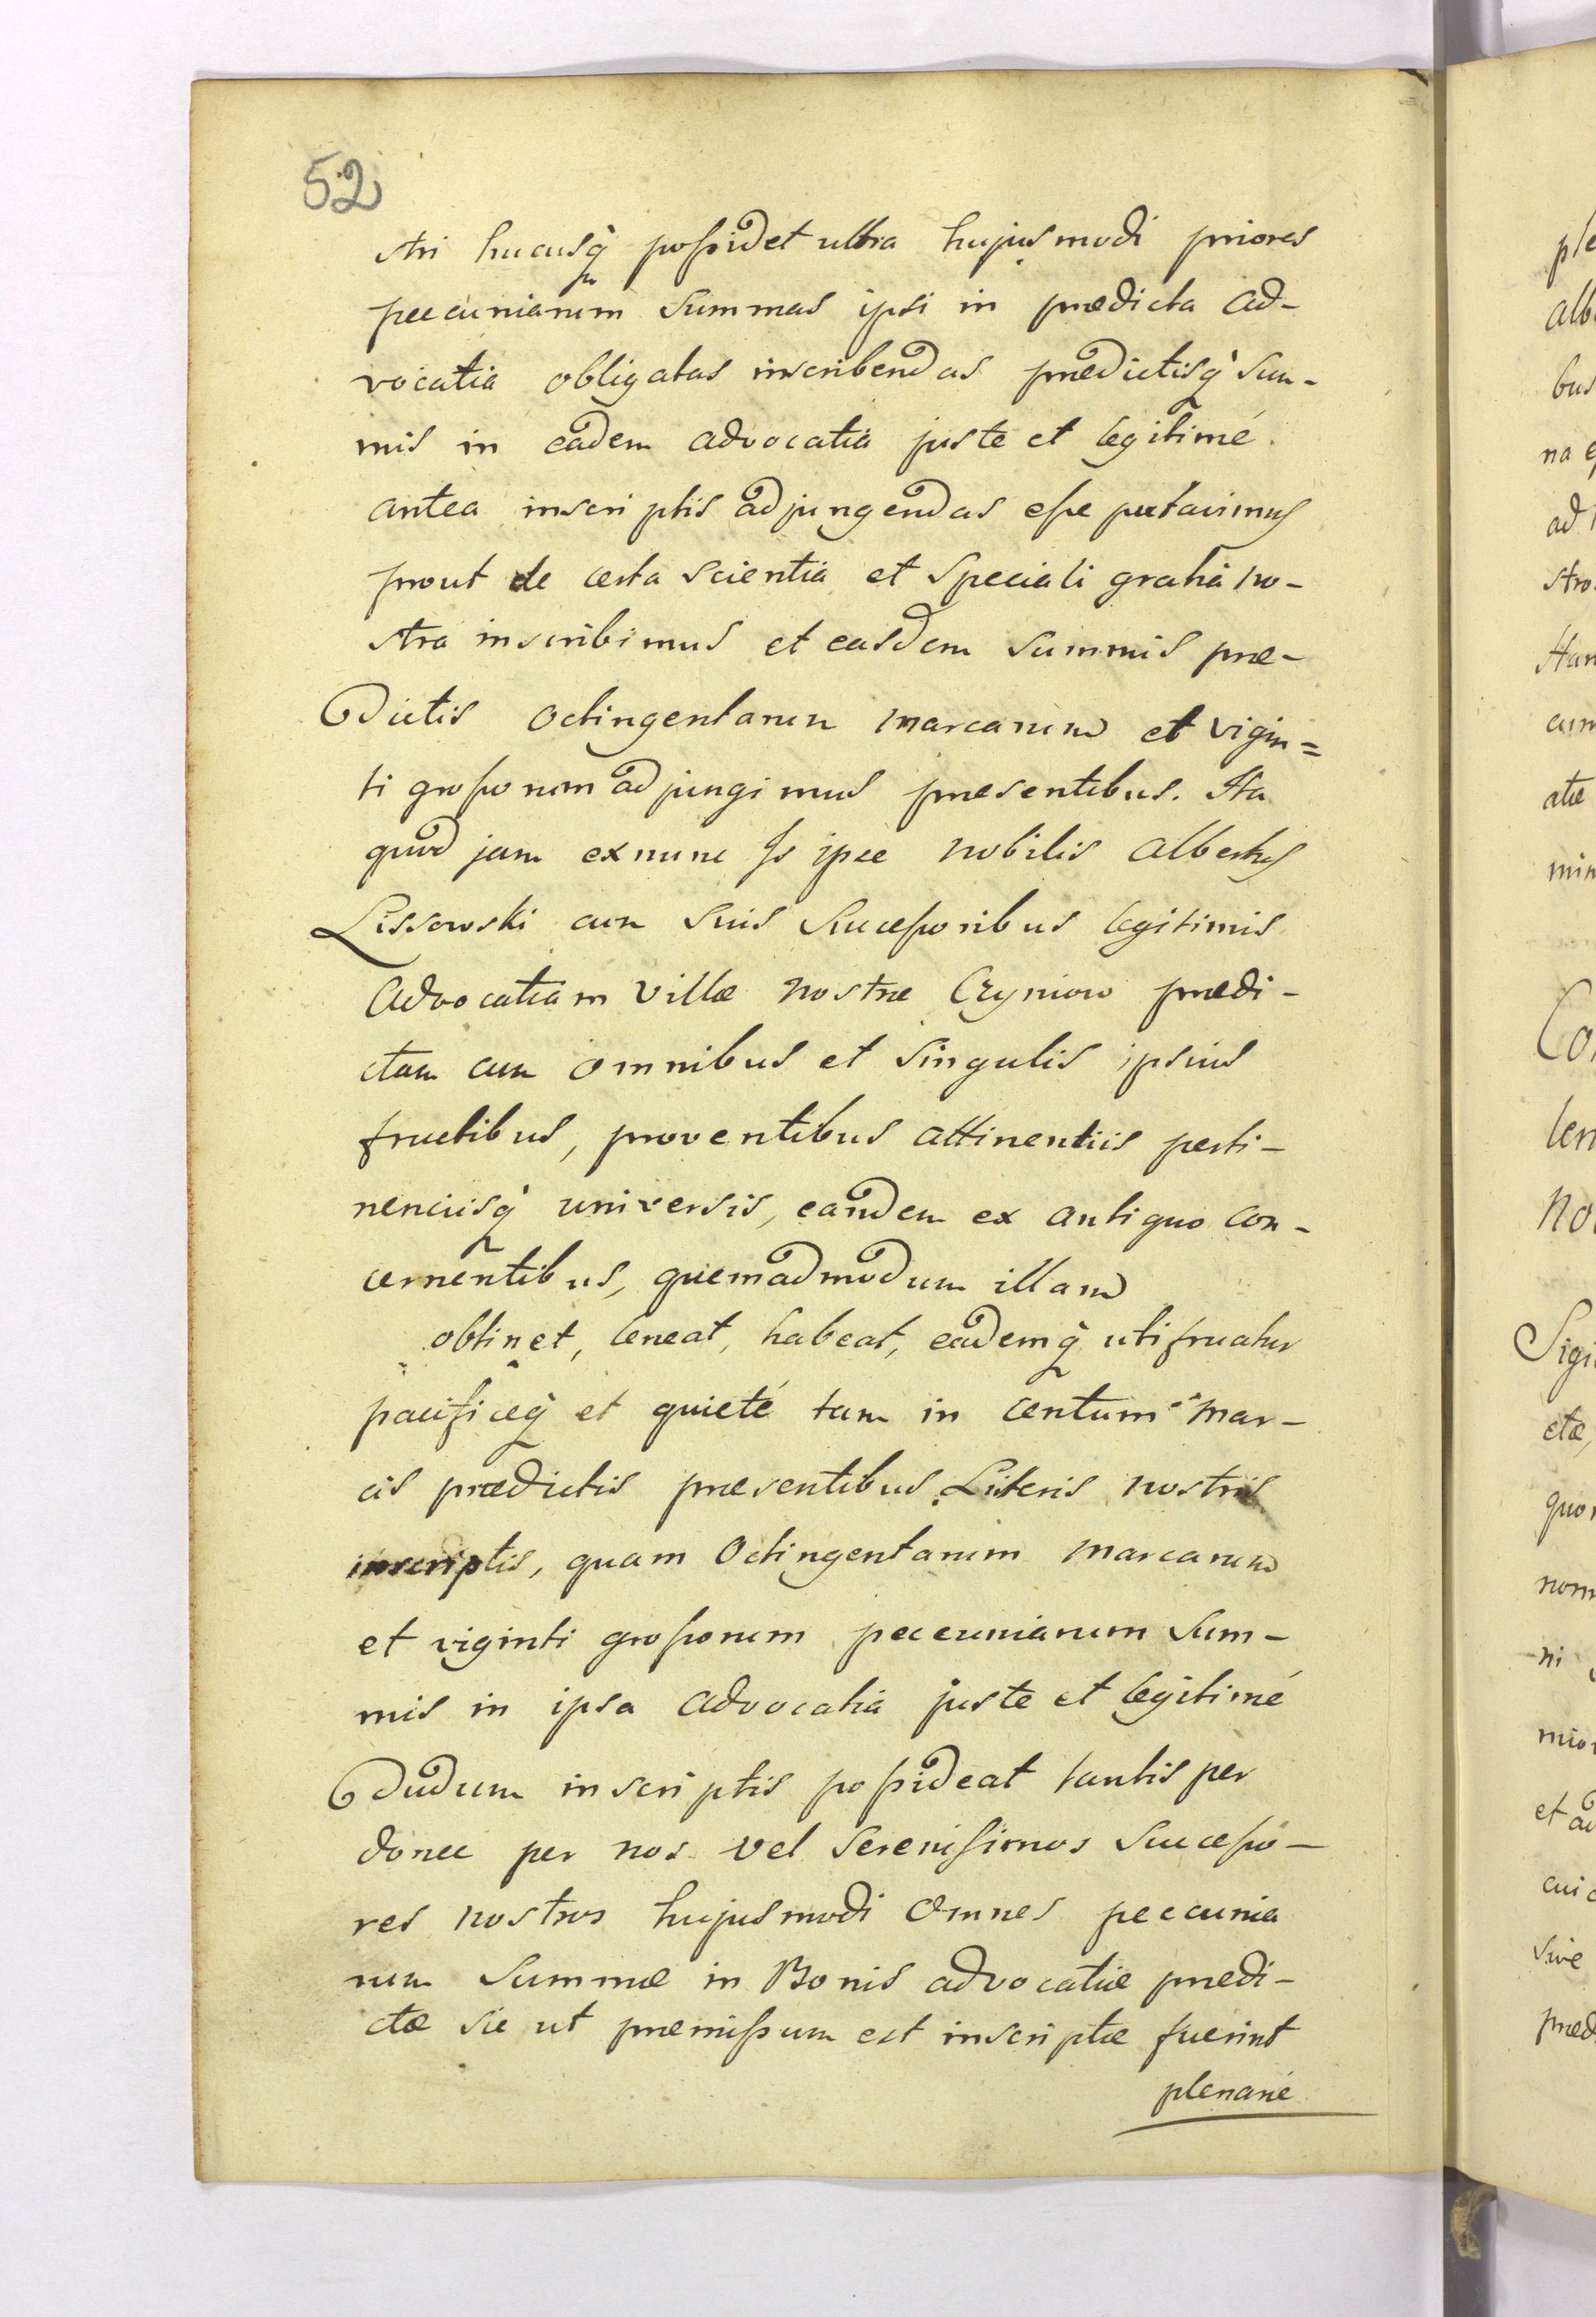 52
stri hucusq̀ possidet ultra hujusmodi priores
peccuniarum summas ipsi in prædicta Ad-
vocatia obligatas inscribendas prædictisq̀ Sum-
mis in eadem advocatia juste et legitimé
antea inscriptis adjungendas esse putavimus
prout de certa scientia et Speciali gratia no-
stra inscribimus et easdem summis præ-
dictis octingentarum marcarum et vigin=
ti grossorum adjungimus præsentibus. Ita
quod jam exnunc Is ipse nobilis Albertus
Lissowski cum suis Successoribus legitimis
Advocatiam Villæ Nostræ Czyniow prædi-
ctam cum omnibus et singulis ipsius
fructibus, proventibus attinentiis perti-
nenciisq̀ universis, eandem ex antiquo con-
cernentibus, quemadmodum illam
obtinet, teneat, habeat, eademq̀ utifruatur
pacificeq̀ et quieté tam in centum mar-
cis prædictis præsentibus Literis nostris
inscriptis, quam Octingentarum marcarum
et viginti grossorum peccuniarum Sum-
mis in ipsa advocatia juste et legitimé
dudum inscriptis possideat tantisper
donec per nos vel Serenissimos Successo-
res nostros hujusmodi omnes peccunia
rum Summæ in Bonis advocatiæ prædi-
ctæ sic ut præmissum est inscriptæ fuerint
plenarié
ple
alb
bus
na
ad
stro
Han
cum
atæ
min
Con
ten
no
Sigi
ctæ,
quor
nom
ni
mio
et
cui
sive
præd